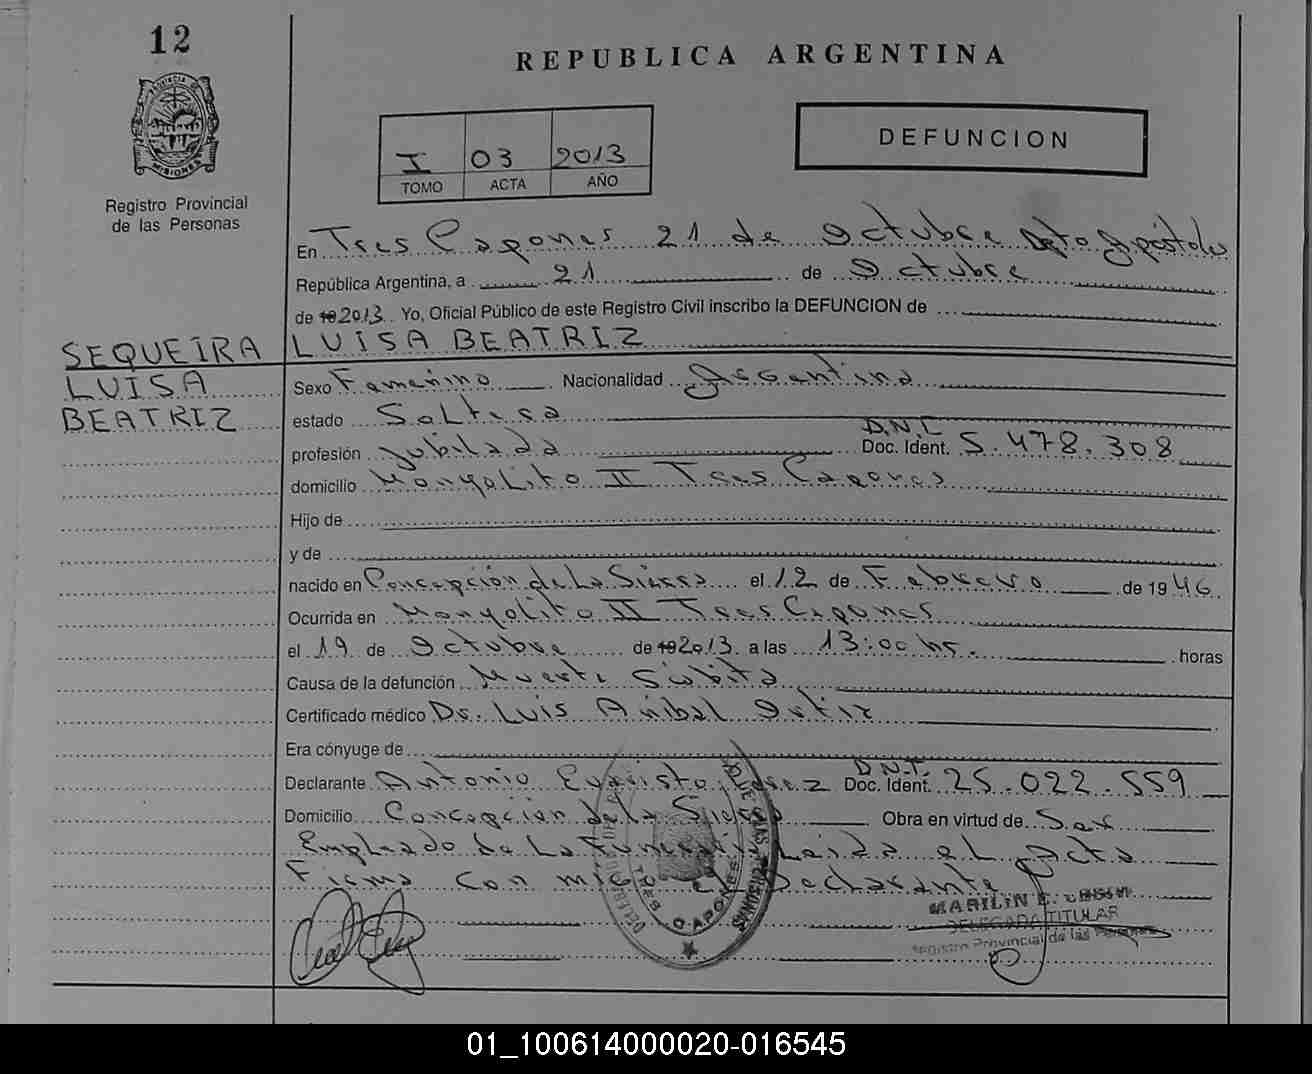 12
REPUBLICA ARGENTINA
PROVINCIA DE
MISIONES
Registro Provincial
de las Personas
I 03 2013
TOMO ACTA AÑO
DEFUNCION
En Tres Capones 21 de Octubre Dpto Apóstoles
República Argentina, a 21 de Octubre
de 19 2013 Yo, Oficial Público de este Registro Civil inscribo la DEFUNCION de
SEQUEIRA LUISA BEATRIZ
LUISA
BEATRIZ
Sexo Femenino Nacionalidad Argentina
estado Soltera
profesión Jubilada D.N.I. Doc. Ident. 5.478.308
domicilio Mongolito II Tres Capones
Hijo de
y de
nacido en Concepción de La Sierra el 12 de Febrero de 1946
Ocurrida en Mongolito II Tres Capones
el 19 de Octubre de 19 2013 a las 13:00 hs. horas
Causa de la defunción Muerte Súbita
Certificado médico Dr. Luis Anibal Ortiz
Era cónyuge de
Declarante Antonio Evaristo D.N.I. Doc. Ident. 25.022.559
Domicilio Concepción de la Sierra Obra en virtud de Ser
Empleado de La Funeraria Leida el Acta
Firma con migo el Declarante
TRES CAPONES
MISIONES
MARILIN E.
DELEGADA TITULAR
Registro Provincial de las Personas
01_100614000020-016545